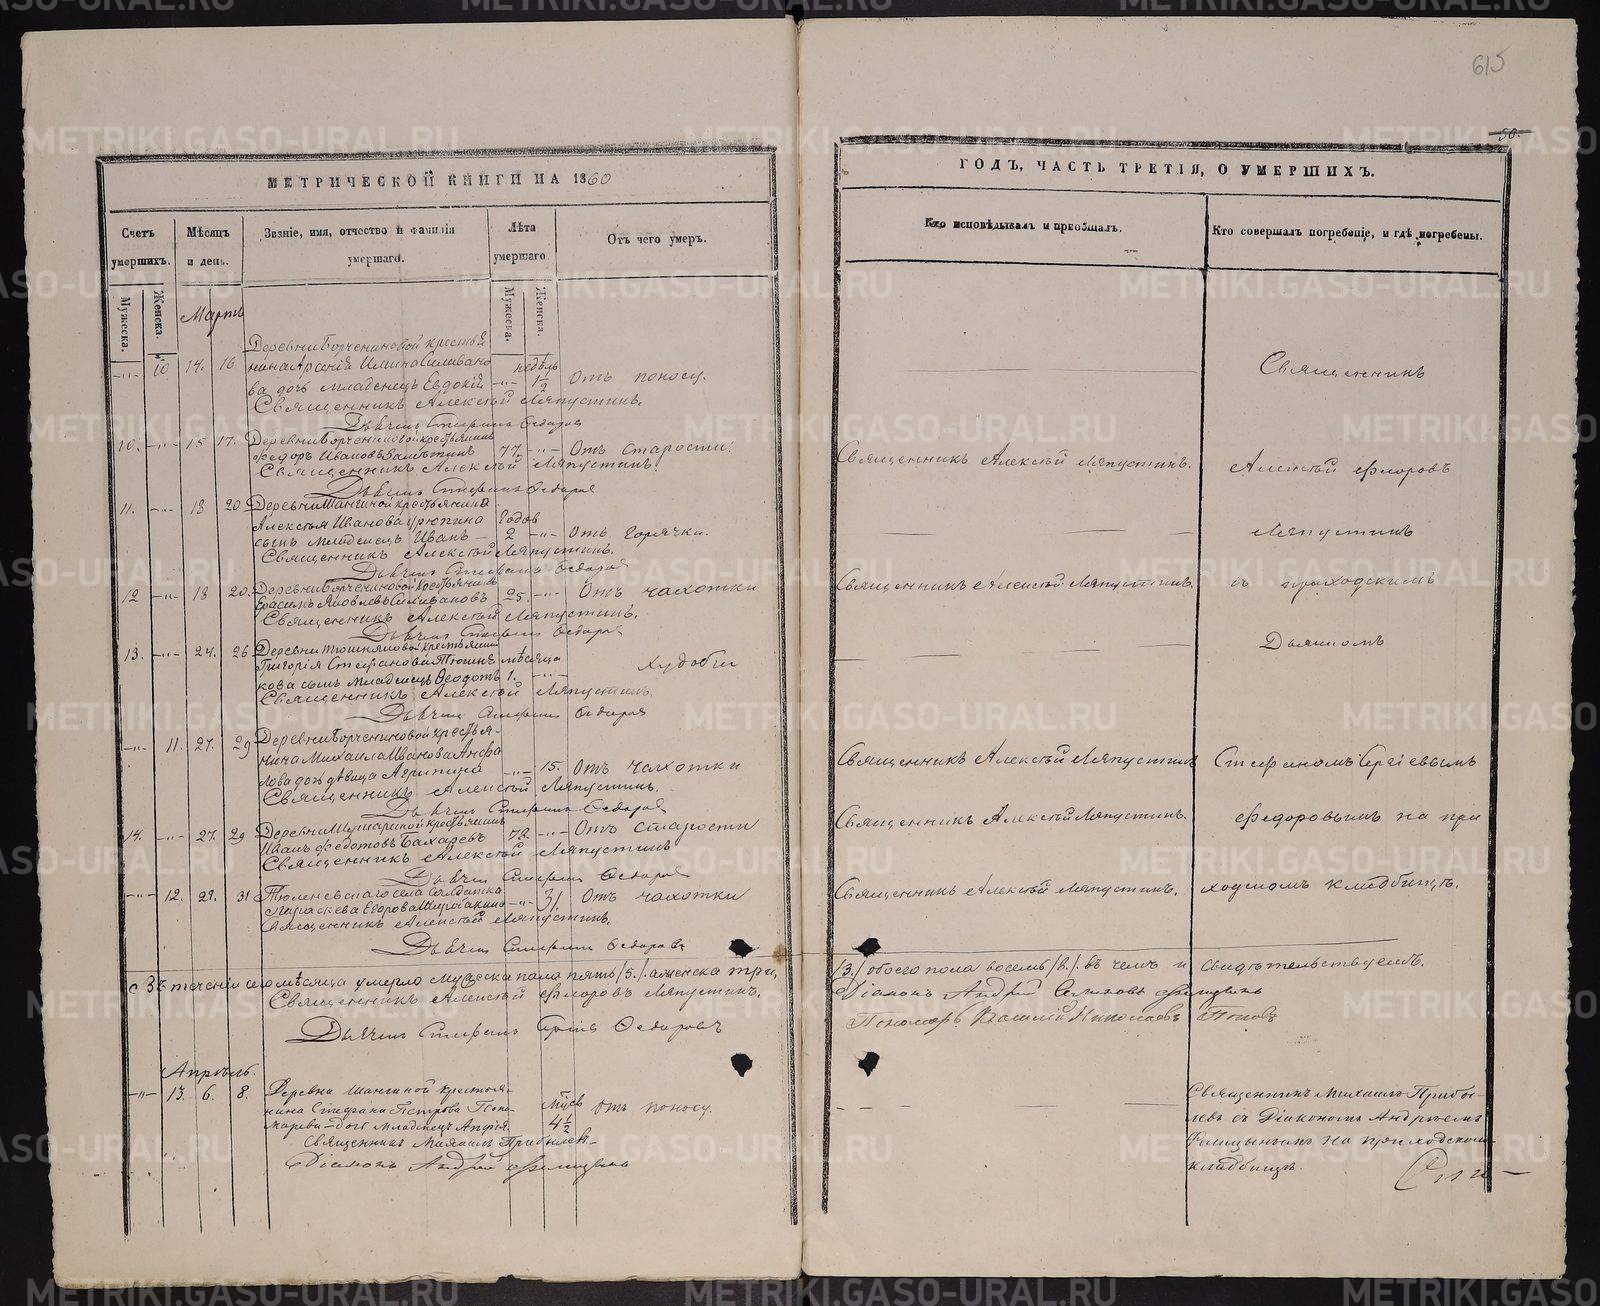 615
50.
МЕТРИЧЕСКОЙ КНИГИ НА 1860
Счетъ умершихъ.
Мѣсяцъ и день.
Званіе, имя, отчество и фамилія умершаго.
Лѣта умершаго.
Отъ чего умеръ.
Мужеска. Женска.
Мужеска. Женска.
Мартъ
Деревни Борчениновой крестья
10 14. 16 нина Арсенія Ильина Селивано недѣль
ва дочь младенецъ Евдокія 1½ Отъ поносу.
Священникъ Алексѣй Ляпустинъ.
Дьячекъ Стефанъ Федоровъ
10. 15 17. Деревни Борчениновой крестьянинъ
Федоръ Ивановъ 77. Отъ старости.
Священникъ Алексѣй Ляпустинъ.
Дьячекъ Стефанъ Федоровъ
11. 18 20 Деревни Шангиной крестьянина
Алексѣя Иванова Урюпина Годов
сынъ младенецъ Иванъ 2 Отъ горячки.
Священникъ Алексѣй Ляпустинъ.
Дьячекъ Стефанъ Федоровъ
12 18 20. Деревни Борчениновой крестьянинъ
Герасимъ Яковлевъ Селивановъ 25. Отъ чахотки
Священникъ Алексѣй Ляпустинъ.
Дьячекъ Стефанъ Федоровъ
13. 24. 26 Деревни Тюшняковой крестьянина
Григорія Стефанова Тюшня мѣсяца
кова сынъ младенецъ Федотъ 1. Худобы
Священникъ Алексѣй Ляпустинъ.
Дьячекъ Стефанъ Федоровъ
11. 27. 29 Деревни Борчениновой крестья-
нина Михаила Иванова Анфа
лова дочь дѣвица Агрипина 15. Отъ чахотки
Священникъ Алексѣй Ляпустинъ.
Дьячекъ Стефанъ Федоровъ
14. 27. 29 Деревни крестьянинъ
Иванъ Федотовъ Бахаревъ 78. Отъ старости
Священникъ Алексѣй Ляпустинъ
Дьячекъ Стефанъ Федоровъ
12. 29. 31 Тюленевскаго села солдатка
Параскева Егорова 31. Отъ чахотки
Священникъ Алексѣй Ляпустинъ.
Дьячекъ Стефанъ Федоровъ
Въ теченіи сего мѣсяца умерло мужеска пола пять /5./. а женска три,
Священникъ Алексѣй Флоровъ Ляпустинъ.
Дьячекъ Стефанъ Сергіевъ Федоровъ
Апрѣль.
13. 6. 8. Деревни Шангиной крестья-
нина Стефана Петрова Поно- мѣсяцев Отъ поносу.
марева дочь младенецъ Анфія. 4½
Священникъ Михаилъ Прибылев
Діаконъ Андрей Фелицынъ
ГОДЪ, ЧАСТЬ ТРЕТІЯ, О УМЕРШИХЪ.
Кто исповѣдывалъ и пріобщалъ.
Кто совершалъ погребеніе, и гдѣ погребены.
Священникъ
Священникъ Алексѣй Ляпустинъ.
Алексѣй Флоровъ
Ляпустинъ
Священникъ Алексѣй Ляпустинъ.
съ приходскимъ
Дьячкомъ
Священникъ Алексѣй Ляпустинъ
Стефаномъ Сергіевымъ
Священникъ Алексѣй Ляпустинъ.
Федоровымъ на при
Священникъ Алексѣй Ляпустинъ.
ходскомъ кладбищѣ.
/3./ обоего пола восемь /8./. въ чемъ и свидѣтельствуемъ.
Діаконъ Андрей Фелицынъ
Пономарь Василій Николаевъ Поповъ
Священникъ Михаилъ Прибы-
левъ съ Діакономъ Андреемъ
Фелицынымъ на приходском
кладбищѣ.
METRIKI.GASO-URAL.RU